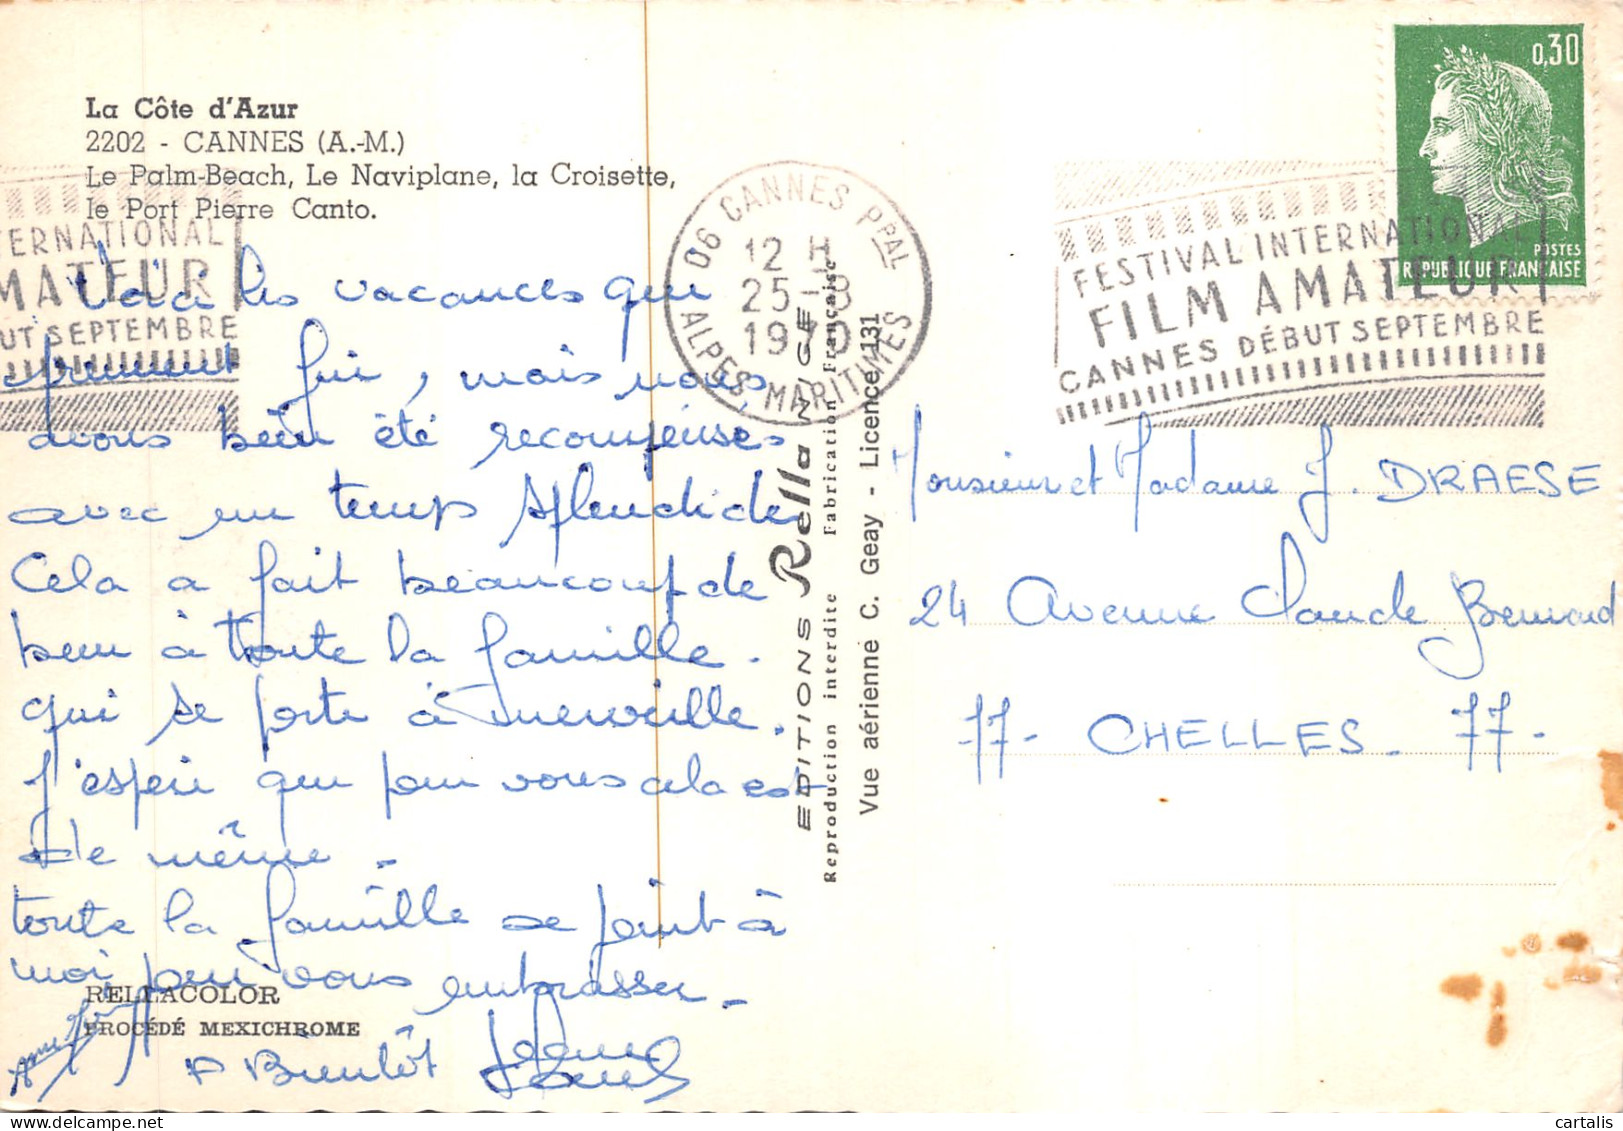 La Côte d'Azur
2202 - CANNES (A.-M.)
Le Palm-Beach, Le Naviplane, la Croisette,
le Port Pierre Canto.
TERNATIONAL
MATEUR
UT SEPTEMBRE
Voici les vacances qui
prennent fin, mais nous
avons bien été recompensés
avec un temps splendide
Cela a fait beaucoup de
bien à toute la famille.
qui se porte à merveille.
J'espère que pour vous cela est
de même.
toute la famille se joint à
moi pour vous embrasser.
A Bientôt
RELLACOLOR
PROCÉDÉ MEXICHROME
06 CANNES PPAL
12 H
25-8
1970
ALPES MARITIMES
EDITIONS Rella NICE
Reproduction interdite Fabrication Française
Vue aérienne C. Geay - Licence 131
0,30
POSTES
REPUBLIQUE FRANÇAISE
FESTIVAL INTERNATIONAL
FILM AMATEUR
CANNES DÉBUT SEPTEMBRE
Monsieur et Madame J. DRAESE
24 Avenue Claude Bernard
77 - CHELLES - 77 -
cartalis